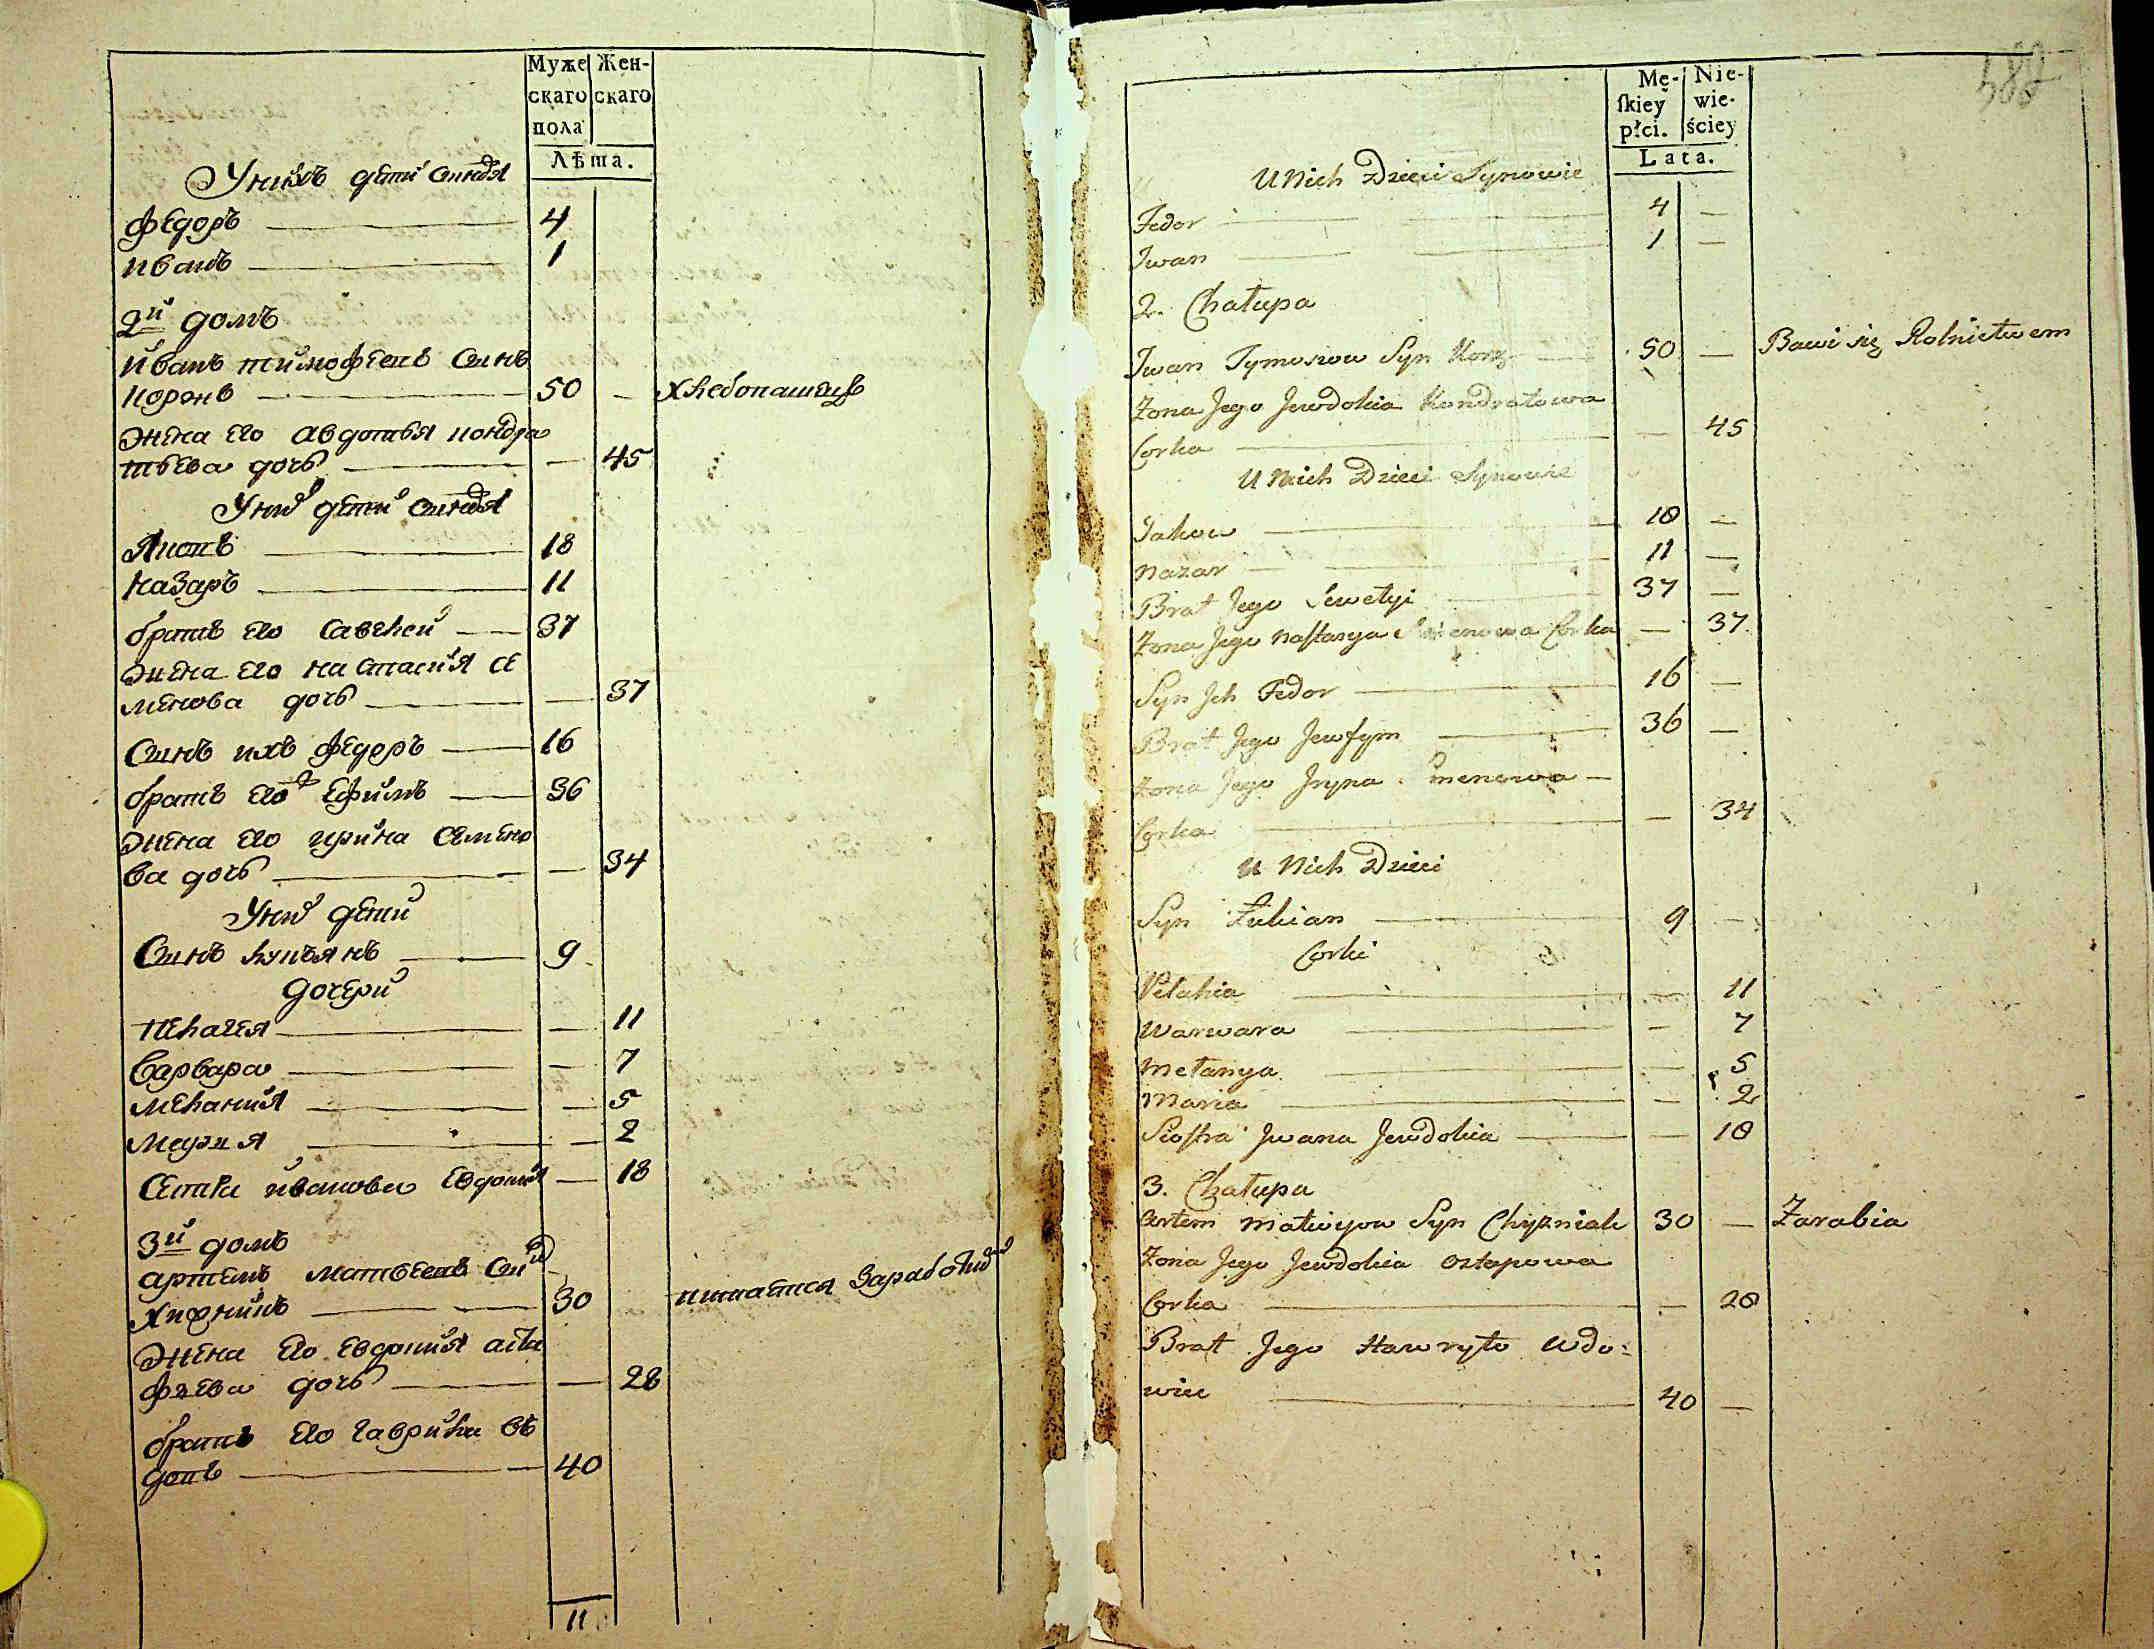 Муже Жен-
скаго скаго
пола
Лѣта.
У нихъ дети синовя
Федоръ 4
Иванъ 1
2й домъ
Иванъ тимофеевъ синъ
50 — хлебопашецъ
жена его авдотья кондра
тьева дочь — 45
У них дети синовя
Яковъ 18
Назаръ 11
братъ его савелей 37
жена его настасия се
менова дочь — 37
Синъ ихъ федоръ 16
братъ его ефимъ 36
жена его ирина семено
ва дочь — 34
У них дети
Синъ лукъянъ 9
дочери
пелагея — 11
Варвара — 7
мелания — 5
мария — 2
Сестра иванова евдокия — 18
3й домъ
артемъ матвеевъ синъ
30 питается заработков
жена его евдокия оста
фиева дочь — 28
братъ его гаврила въ
довъ 40
11
588
Mę- Nie-
ſkiey wie-
płci. ściey
Lata.
U Nich Dzieci Synowie
Fedor 4 —
Iwan 1 —
2. Chałupa
Iwan Tymoszow Syn Korz 50 — Bawi się Rolnictwem
Żona Jego Jewdokia Kondratowa
Corka — 45
U Nich Dzieci Synowie
Jakow 18 —
Nazar 11 —
Brat Jego Sewelyi 37 —
Żona Jego Nastasya Corka — 37
Syn Ich Fedor 16 —
Brat Jego Jewfym 36 —
Żona Jego Iryna —
Corka — 34
U Nich Dzieci
Syn Łukian 9 —
Corki
Pelahia — 11
Warwara — 7
Mełanya — 5
Maria — 2
Siostra Iwana Jewdokia — 18
3. Chałupa
Artem Matwijow Syn Chyzniak 30 — Zarabia
Żona Jego Jewdokia Ostapowa
Corka — 28
Brat Jego Hawryło wdo:
wiec 40 —